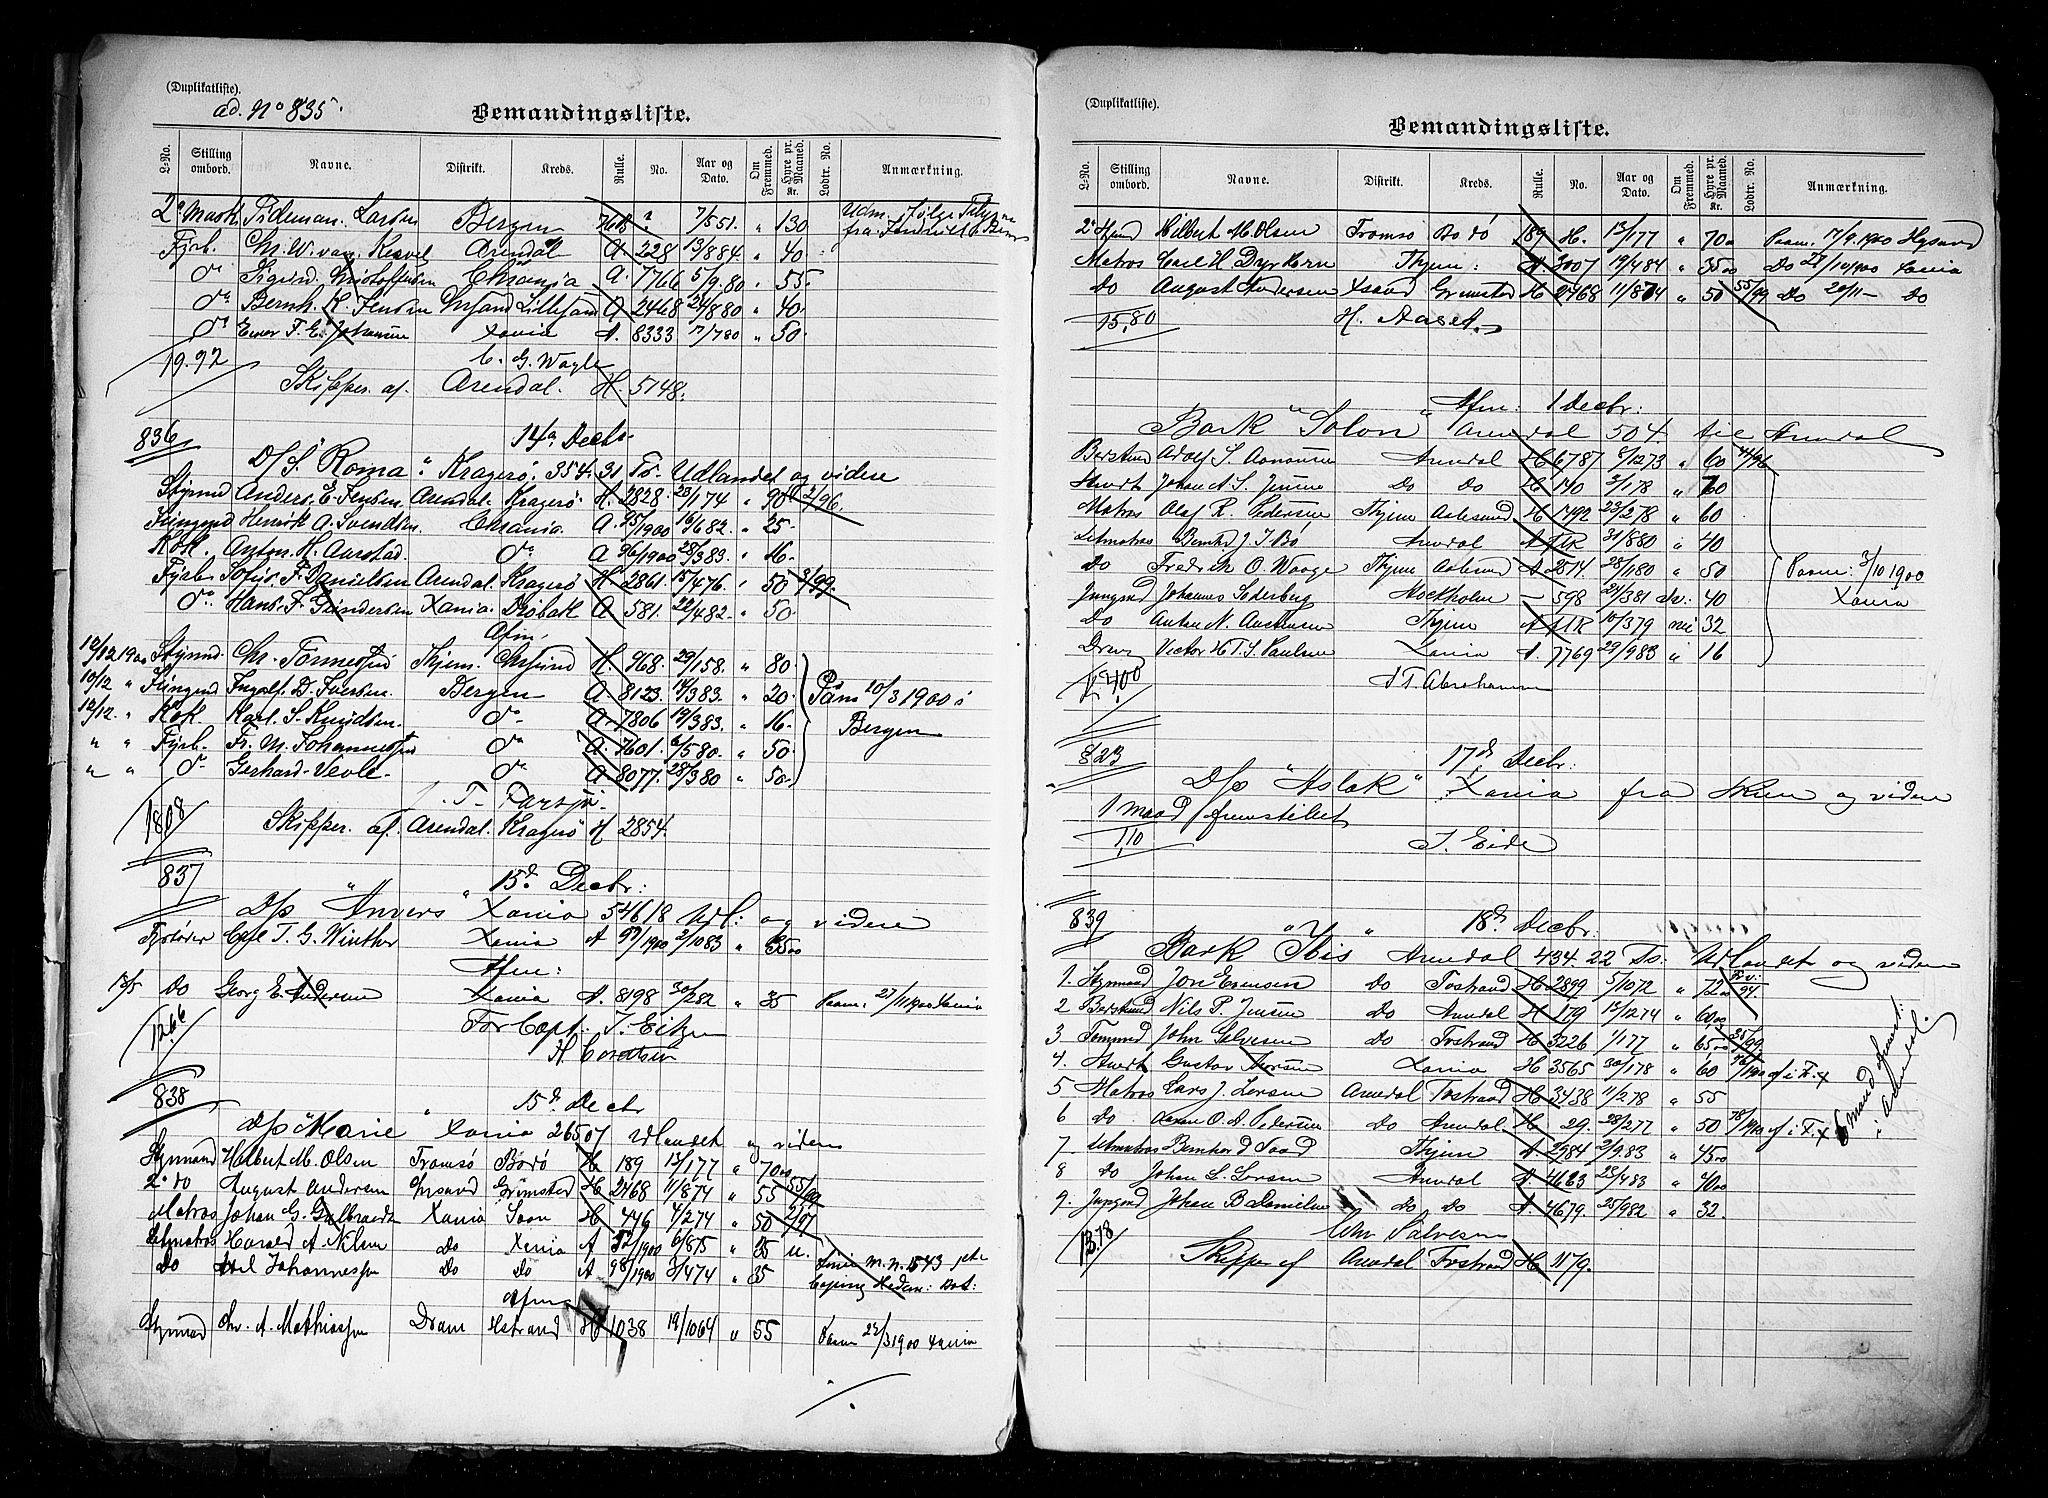 (Duplikatliste).
ad. No 835.
Bemandingsliste.
L-No. Stilling ombord. Navne. Distrikt. Kreds. Rulle. No. Aar og Dato. Om Fremmed. Hyre pr. Maaned. Kr. Lodtr. No. Anmærkning.
2o Mask. Tideman Larsen Bergen 7/551 " 130
Fyrb. Chr. W. van Arendal A 228 13/884 " 40
do Sigurd Christoffersen Chrania A. 7766 5/980 " 55
do Bernh. K. Jensen Chrsand Lillesand A 2468 24/880 " 40
do Einar F. E. Johansen Xania A. 8333 17/780 " 50
19.92 C. G. Wagle
Skipper af Arendal. H. 5148.
836 14de Decbr
D/S. "Roma" Kragerø. 354.31 To. Udlandet og videre
Styrmd Anders E. Jensen Arendal Kragerø H. 2828 20/174 " 90 2/96
Jungmd Henrik A. Svendsen. Chrania. A 95/1900 16/682 " 25
Kok. Anton H. Aarstad. do A 96/1900 28/383 " 16
Fyrb. Sofus F. Danielsen Arendal Kragerø H. 2861 15/476 " 50 3/99
do Hans F. Gundersen Xania. Drøbak A 581 22/482 " 50
Afm.
12/12 1900 Styrmd. Chr. Tormodsen Thjem. Chrsund H. 968 29/158 " 80
10/12 " Jungmd Ingolf D. Iversen Bergen A. 8123 14/383 " 20 Paam 20/3 1900 i
12/12 " Kok. Karl S. Knudsen. do A. 7806 19/383 " 16 Bergen
" " Fyrb. Fr. M. Johannessen do A. 7601 6/580 " 50
" " do Gerhard Vevle. do A. 8077 28/380 " 50
1808
Skipper af Arendal Kragerø H 2854.
837 15de Decbr:
D/s "Anvers" Xania 546.18 Udl: og videre
Carl T. G. Winther Xania A 97/1900 2/1083 " 35.00
Afm:
13/5 do Georg E. Andersen Xania A. 8198 30/282 " 35 Paam: 27/11 1900 Xania
12.66 For Capt. J. Eitzen
838 15de Decbr
D/s "Marie" Xania 265.07 Udlandet og videre
Styrmand Halbert M. Olsen Tromsø Bodø H 189 13/177 " 70.00
2o do August Andersen Chrsand Grimstad H 2468 11/874 " 55 55/99
Matros Johan G. Galbraedt Xania Soon H 446 4/274 " 50 2/97
Letmatros Harald A. Nilsen do Xania A 52/1900 6/875 " 35
Do Johannessen Do Do A 98/1900 3/474 " 35
Afm
Styrmd Chr. A. Mathiassen Dram Hstrand H 1038 19/1064 " 55 Paam 22/3 1900 Xania
(Duplikatliste).
Bemandingsliste.
L-No. Stilling ombord. Navne. Distrikt. Kreds. Rulle. No. Aar og Dato. Om Fremmed. Hyre pr. Maaned. Kr. Lodtr. No. Anmærkning.
2o Stmd Hilbert M. Olsen Tromsø Bodø 189 H. 13/177 " 70.00 Paam. 17/9 1900
Matros Carl H. Dyrkorn Thjem: A 3007 19/484 " 35.00 Do 22/10 1900 Xania
Do August Andersen Xsand Grimstad H 2468 11/874 " 50 55/99 Do 20/11 — Do
15,80 H. Aaset.
Afm: 1 Decbr:
Bark "Solon" Arendal 504 til Arendal
Bestmd Adolf S. Aanonsen Arendal H 6787 8/1273 " 60 4/96
Stuert Johan A. S. Jensen Do Do H 140 2/178 " 60
Matros Olaf R. Pedersen Thjem Aalesund H 1792 23/278 " 60
Letmatros Bernhd J. T. Bø Arendal A 31/880 " 40
Do Fredrik O. Waage Thjem Aalesund A 2514 28/1180 " 50 Paam: 3/10 1900
Jungmd Johannes Søderberg Stockholm — 598 21/381 Sv: 40 Xania
Do Anton N. Thjem A 10/379 nei 32
Dreng Victor H. T. S. Paulsen Xania A. 7769 29/983 " 16
N T. Abrahamsen
823 17de Decbr:
D/s "Aslak" Xania fra Skien og videre
1 mand fremstillet
1,10 J. Eide
839 18de Decbr:
Bark "Ibis" Arendal 434.22 To: Udlandet og videre
1. Styrmand Jon Evensen Do Tvstrand H 2899 5/1072 " 72.00
2 Bestmd Nils P. Jensen Do Arendal H 179 13/1274 " 60.00
3 Tømmd John Salvesen Do Tvstrand H 3226 1/177 " 65.00 25/99
4. Stuert Gustav Xania H 3565 30/178 " 60 76/1900 ef i F.X
5 Matros Lars J. Larsen Arendal Tvstrand H 3438 11/278 " 55
6 Do O. A. Pedersen Do Arendal H 29. 28/277 " 50 78/1900 ef i F.X
7. Letmatros Bernhard Saad Thjem A 2984 2/983 " 45.00
8 Do Johan L. Larsen Arendal A 4663 23/483 " 40.00
9. Jungmd Johan B. Danielsen Do Do A. 4679. 25/982 " 32.
mand fremst: i Arendal.
13.78 Salvesen
Skipper af Arendal Tvstrand H 1179.